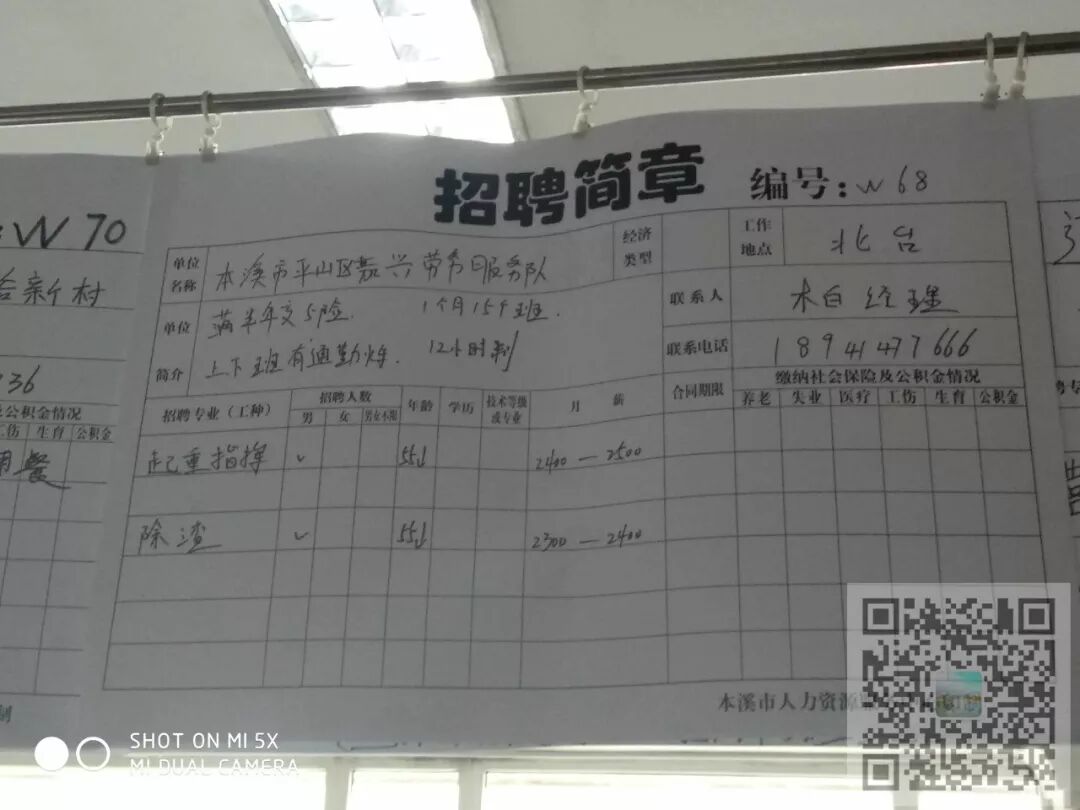 招聘简章
编号:W68
单位名称
本溪市平山区振兴劳务服务队
经济类型
工作地点
北台
单位简介
满半年交5险. 1个月15个班.
上下班有通勤炸. 12小时制
联系人
木白经理
联系电话
18941477666
招聘专业(工种)
招聘人数
男 女 男女不限
年龄
学历
技术等级或专业
月 薪
合同期限
缴纳社会保险及公积金情况
养老 失业 医疗 工伤 生育 公积金
起重指挥 ✓ 55↓ 2400—2500
除渣 ✓ 55↓ 2300—2400
本溪市人力资源
:W 70
新村
36
公积金情况
工伤 生育 公积金
餐
制
SHOT ON MI 5X
MI DUAL CAMERA